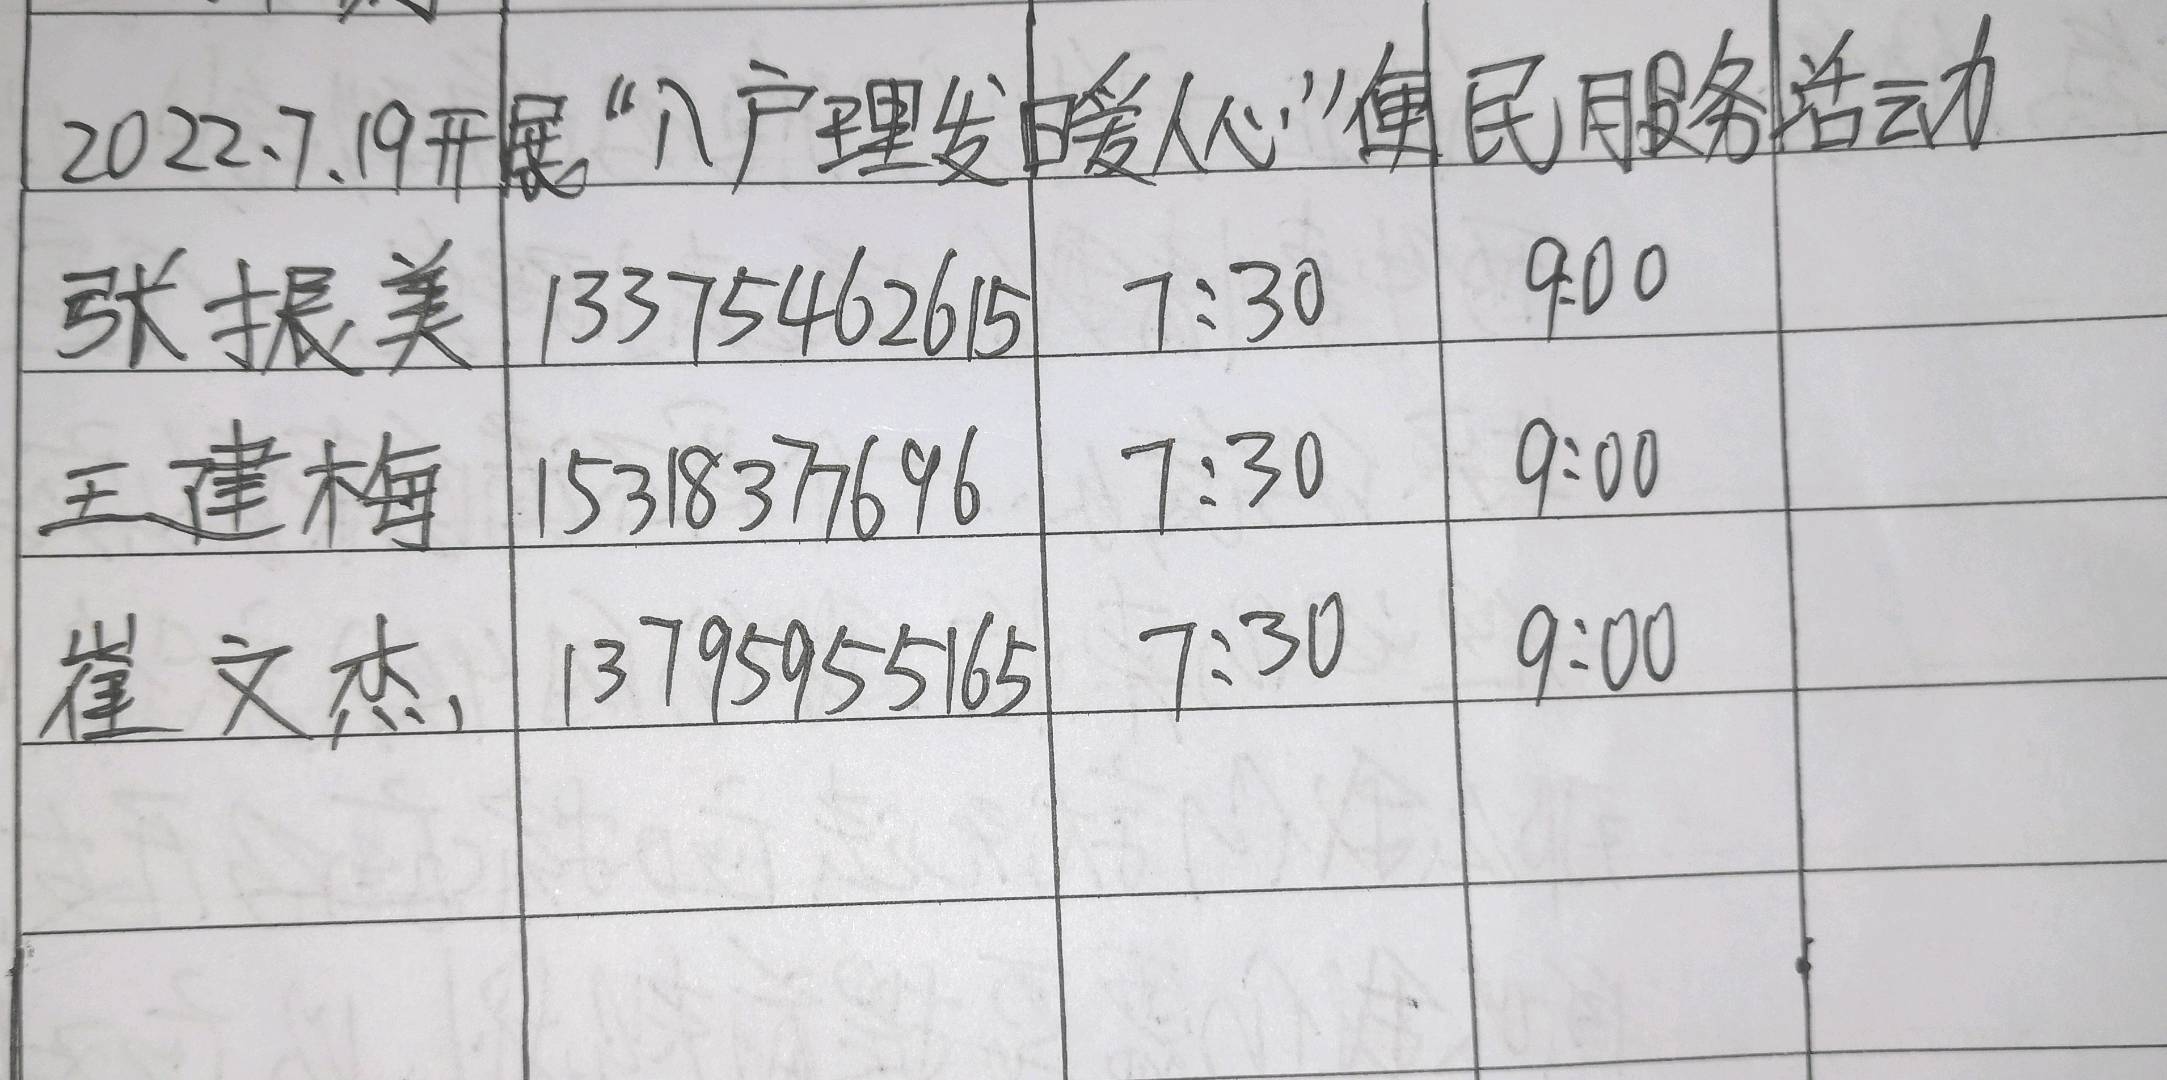 2022.7.19开展“入户理发暖人心”便民服务活动
张振美 13375462615 7:30 9:00
王建梅 15318377696 7:30 9:00
崔文杰 13795955165 7:30 9:00